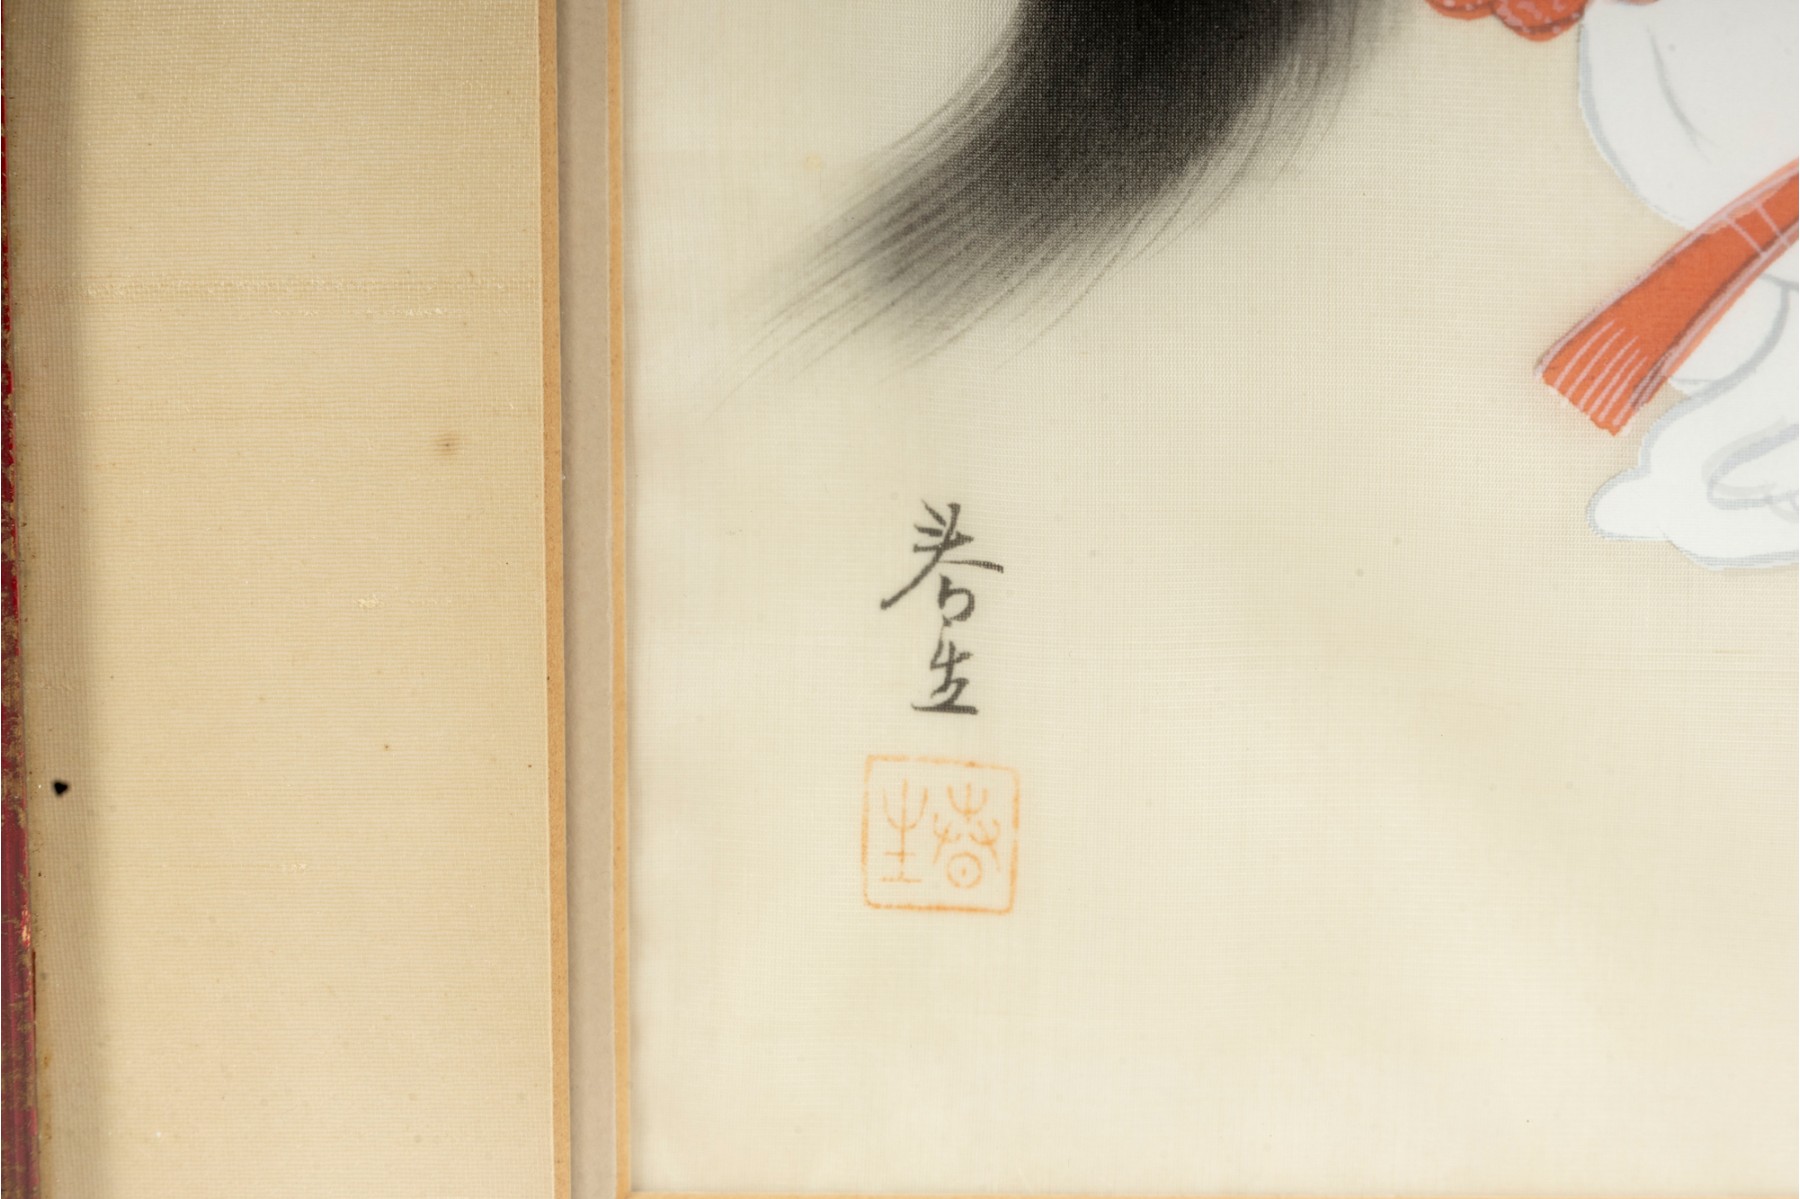 春生
春生